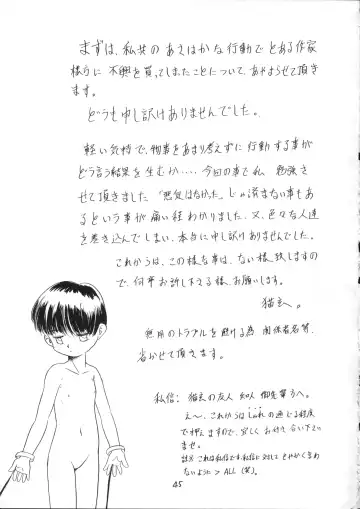 まずは、私共のあさはかな行動でとある作家
様方に不興を買ってしまったことについて、あやまらせて頂き
ます。
どうも申し訳ありませんでした。
軽い気持で、物事をあまり考えずに行動する事が
どう言う結果を生むか‥‥、今回の事で私 勉強さ
せて頂きました「悪気はなかった」じゃ済まない事もあ
るという事が痛い程わかりました。又、色々な人達
を巻き込んでしまい、本当に申し訳ありませんでした。
これからは、この様な事は、ない様、致しますの
で、何卒お許し下さる様、お願いします。
猫玄。
無用のトラブルを避ける為 関係者名等、
省かせて頂きます。
私信: 猫玄の友人 知人 御先輩方へ。
え〜、これからはしゃれの通じる程度
で押えますので、宜しくお付き合い下さい
ませ。
註※これは私信です、私信に対して とやかく言わ
ないように > ALL (笑)。
45